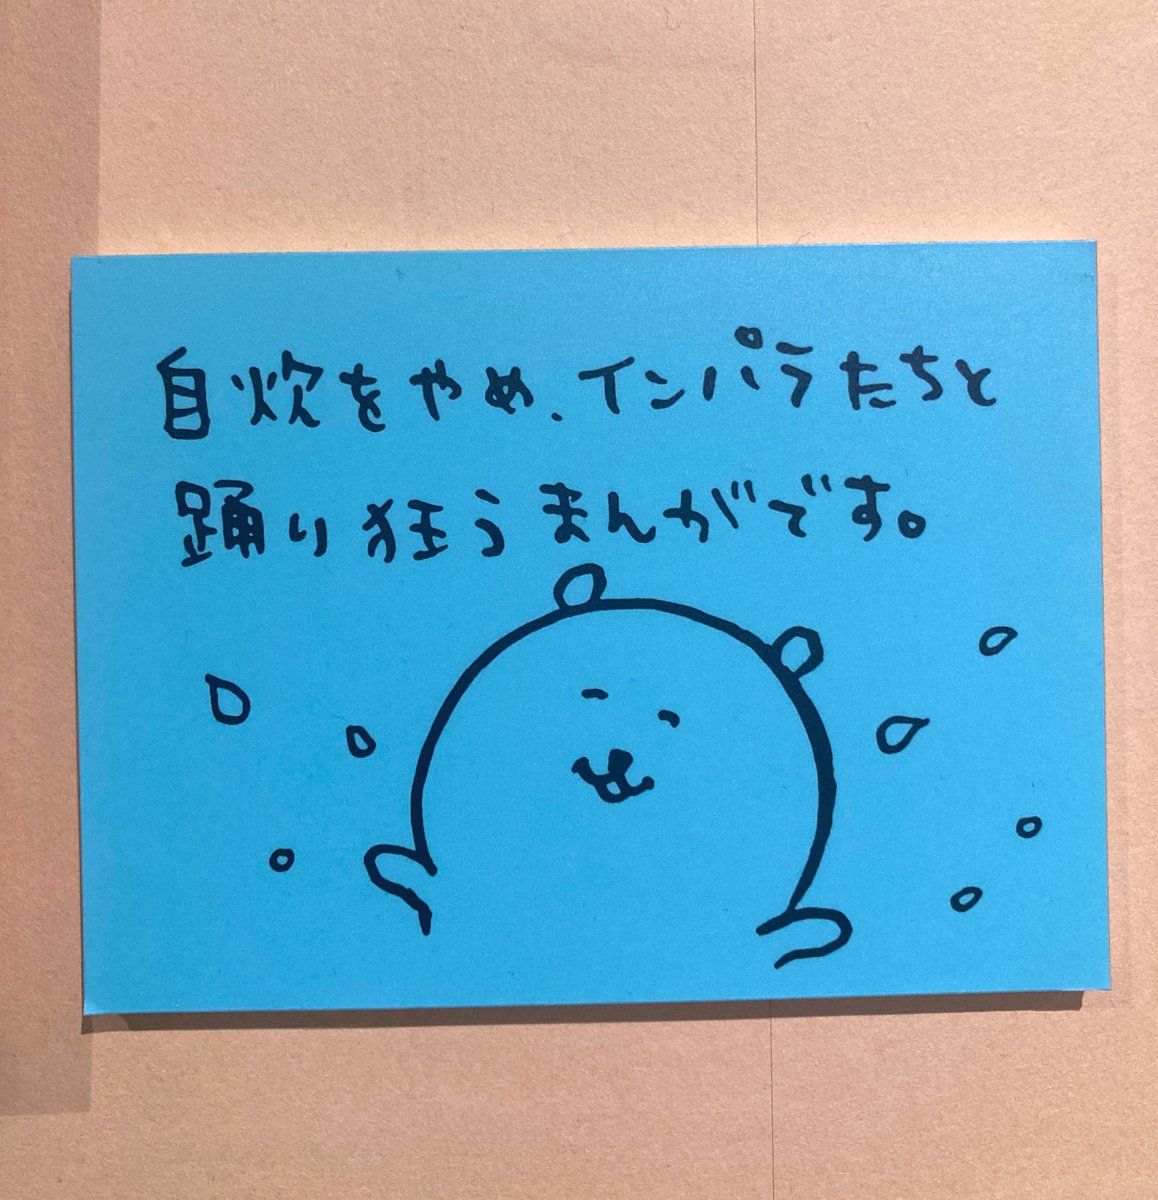 自炊をやめ、インパラたちと
踊り狂うまんがです。